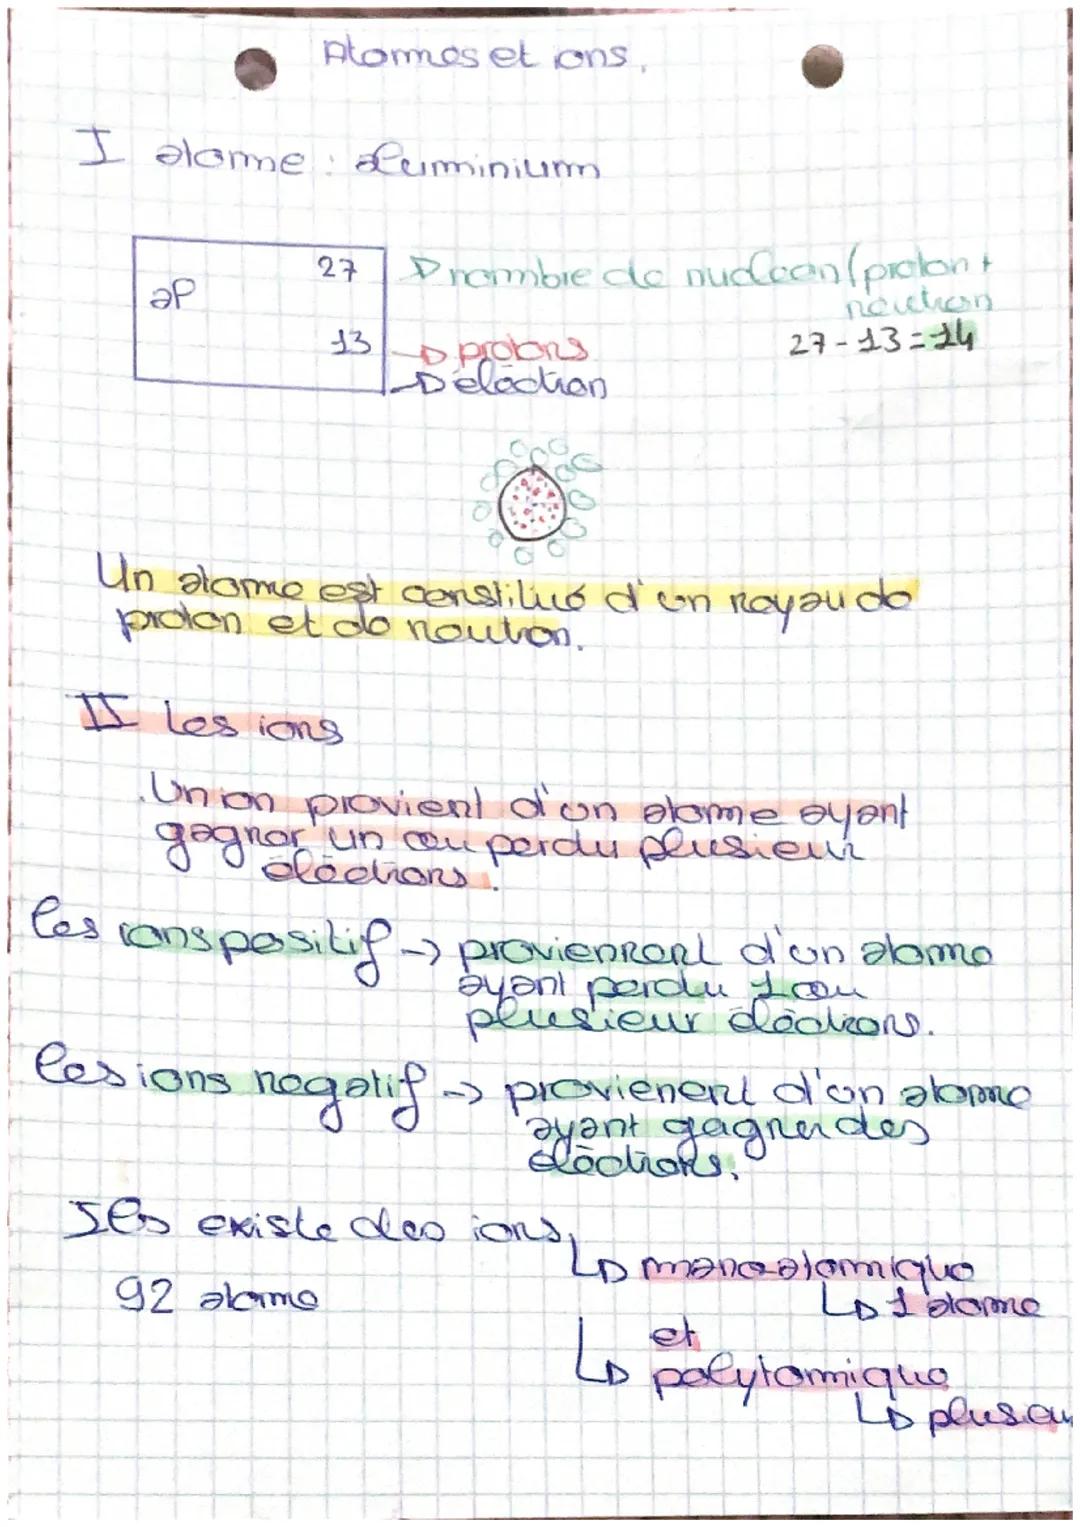 Atomes et ions.
I atome : aluminium
al
27
nombre de nucleon (proton +
neutron
13
protons
27-13=14
électron
Un atome est constitué d'un noyau de
proton et de neutron.
II les ions
.Un ion provient d'un atome ayant
gagner un ou perdu plusieur
électrons.
les ions positif → proviennent d'un atome
ayant perdu 1 ou
plusieur électrons.
les ions negatif → provienent d'un atome
ayant gagner des
électrons.
Ils existe des ions,
monoatomique
92 atome
1 atome
et
polytomique
plusieu